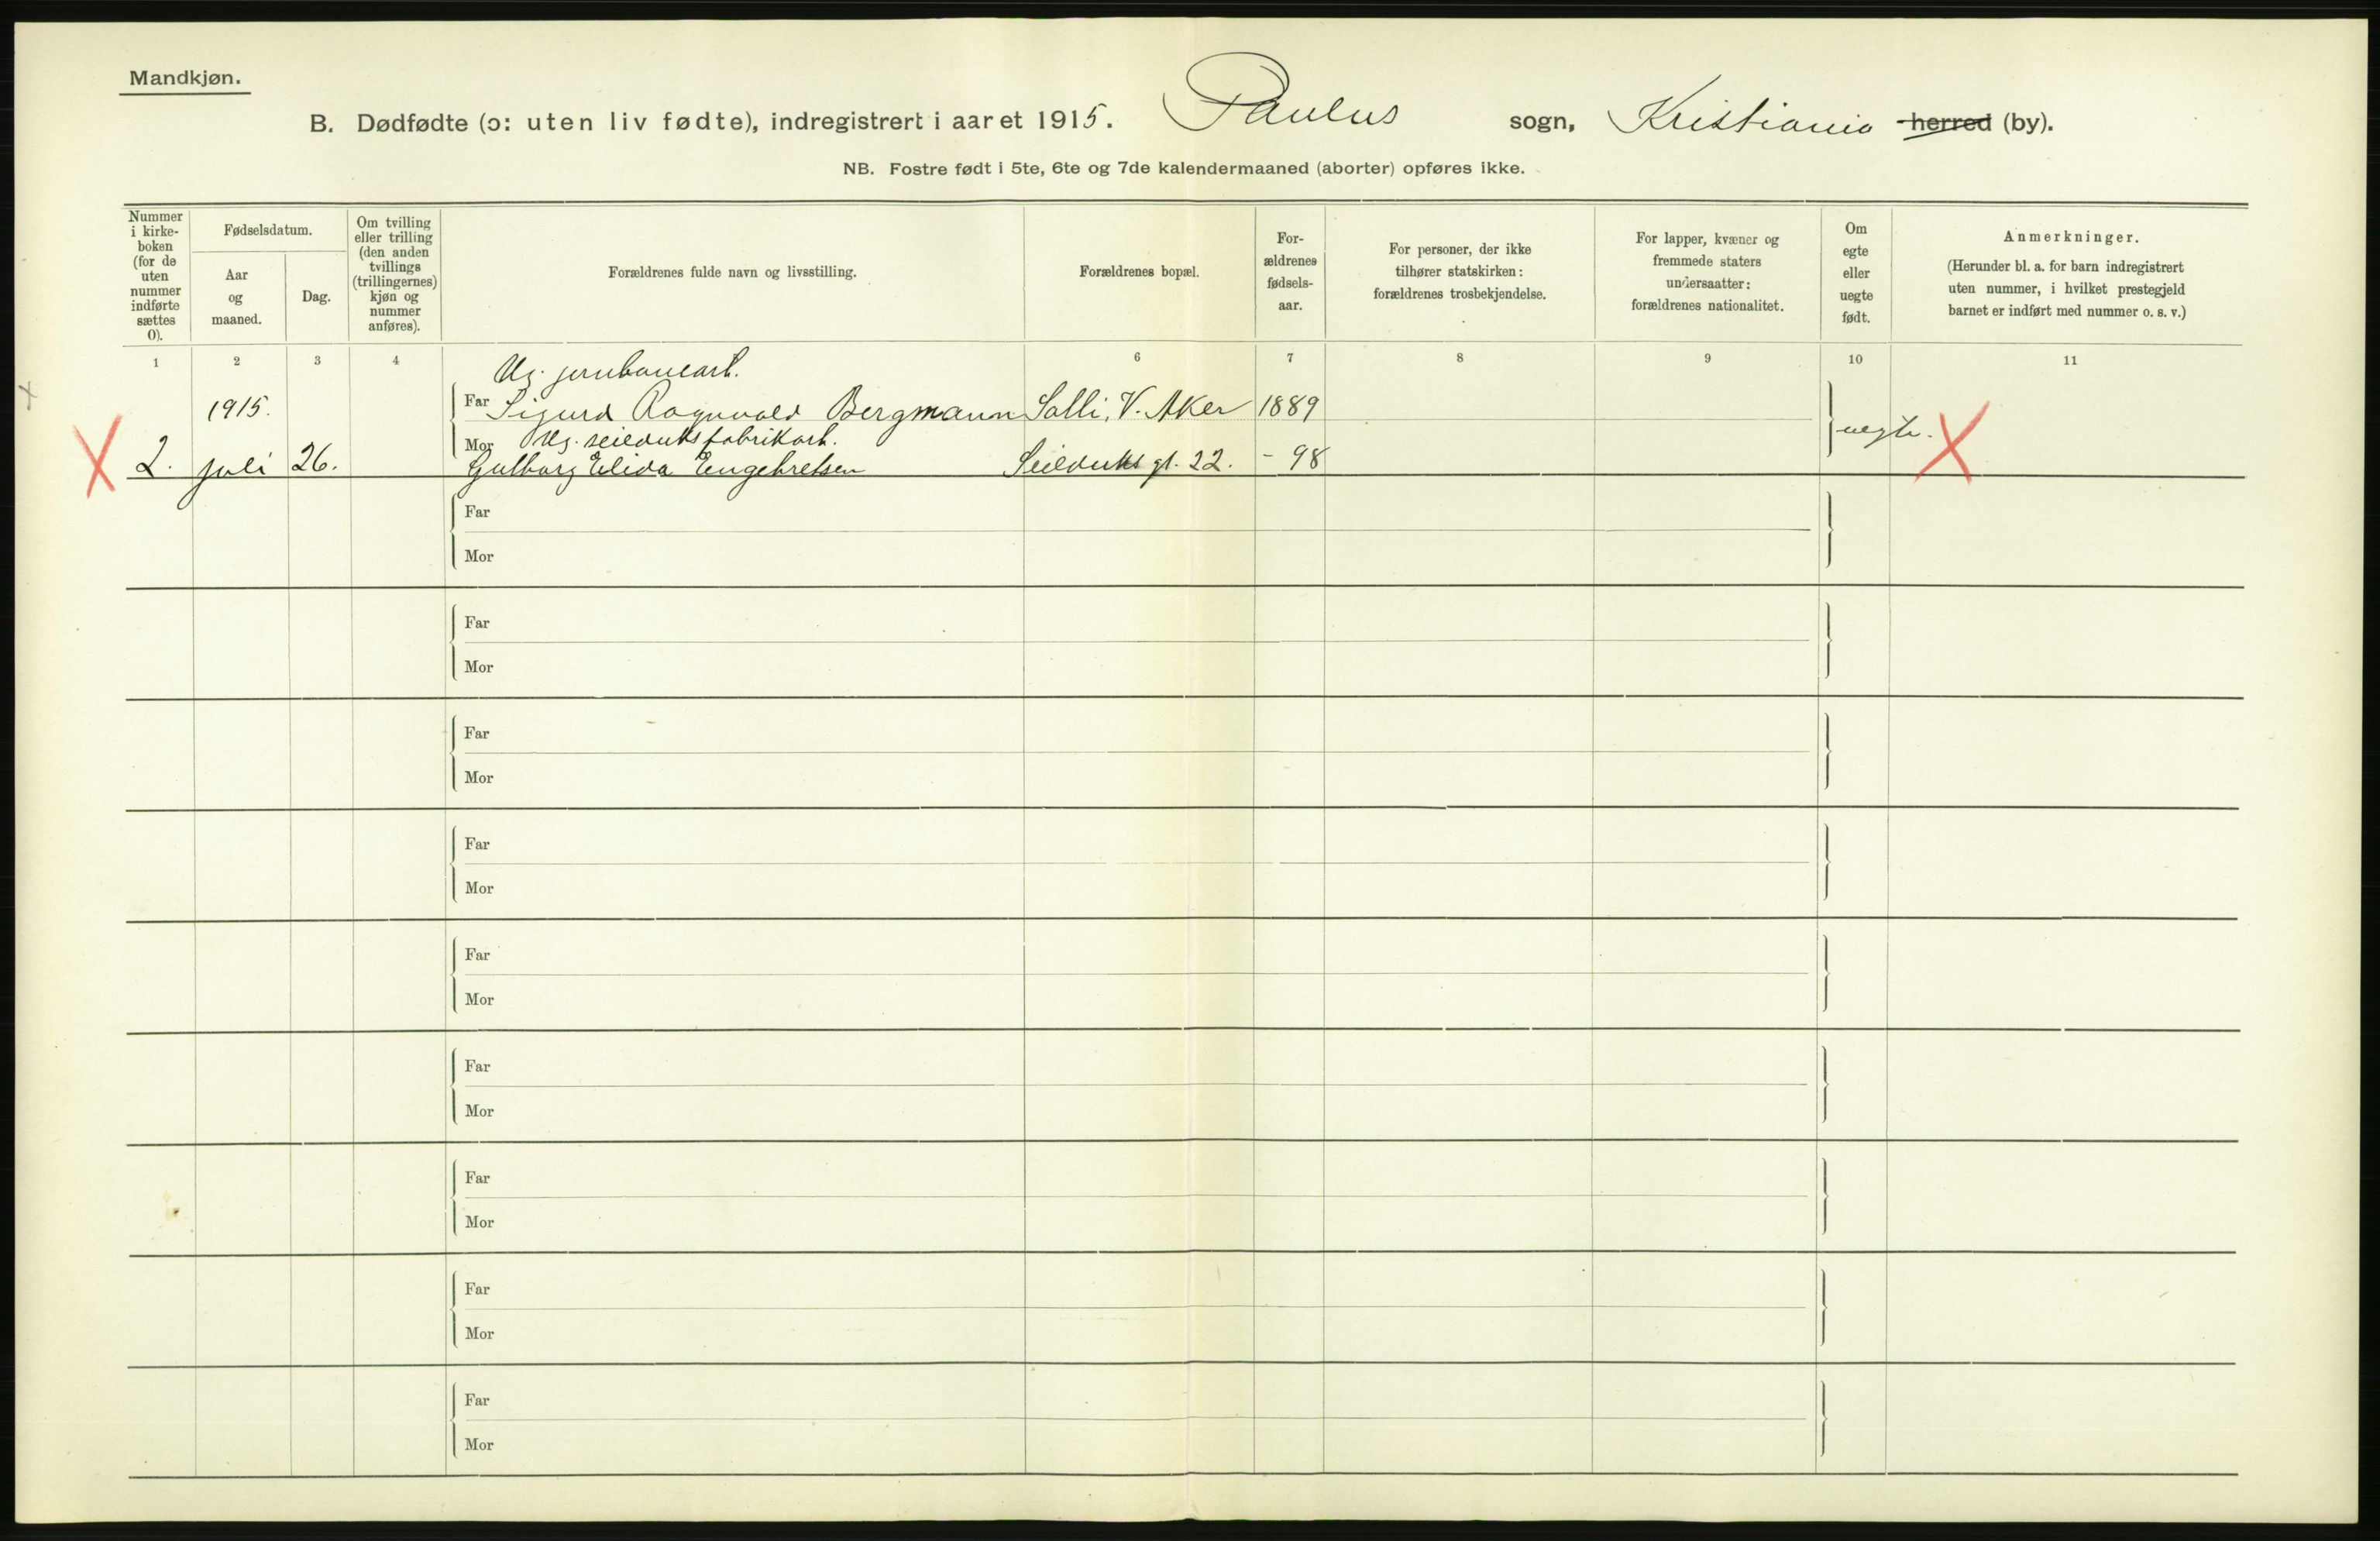 Mandkjøn.
B. Dødfødte (ɔ: uten liv fødte), indregistrert i aaret 1915. Paulus sogn, Kristiania herred (by).
NB. Fostre født i 5te, 6te og 7de kalendermaaned (aborter) opføres ikke.
Nummer
i kirke-
boken
(for de
uten
nummer
indførte
sættes
0).
Fødselsdatum.
Aar
og
maaned.
Dag.
Om tvilling
eller trilling
(den anden
tvillings
(trillingernes)
kjøn og
nummer
anføres).
Forældrenes fulde navn og livsstilling.
Forældrenes bopæl.
For-
ældrenes
fødsels-
aar.
For personer, der ikke
tilhører statskirken:
forældrenes trosbekjendelse.
For lapper, kvæner og
fremmede staters
undersaatter:
forældrenes nationalitet.
Om
egte
eller
uegte
født.
Anmerkninger.
(Herunder bl. a. for barn indregistrert
uten nummer, i hvilket prestegjeld
barnet er indført med nummer o. s. v.)
1 2 3 4 6 7 8 9 10 11
Ug. jernbanearb.
1915. Far Sigurd Ragnvald Bergmann Solli, V. Aker 1889
Mor Ug. seilduksfabrikarb. uegte.
2. juli 26. Gulborg Elida Engebretsen Seilduks gt. 22. - 98
Far
Mor
Far
Mor
Far
Mor
Far
Mor
Far
Mor
Far
Mor
Far
Mor
Far
Mor
Far
Mor